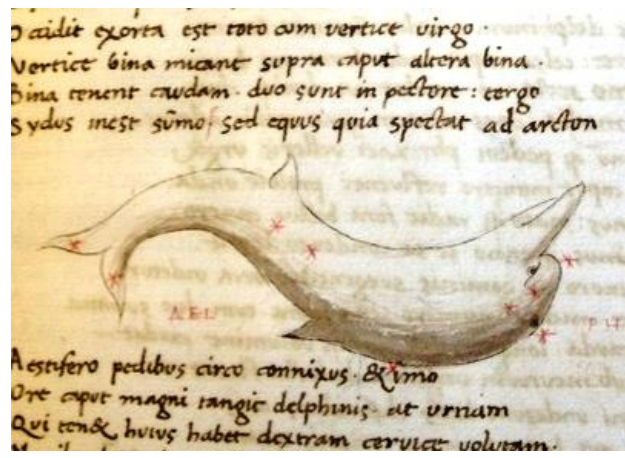 Occidit exorta est toto cum vertice virgo.
Vertice bina micant supra caput altera bina.
Bina tenent caudam. duo sunt in pectore: tergo
Sydus inest sūmo sed equus quia spectat ad arcton
DEL PIT
Aestifero pedibus circo connixus. & imo
Ore caput magni tangit delphinis. at urnam
Qui ten& huius habet dextram cervice volutam.